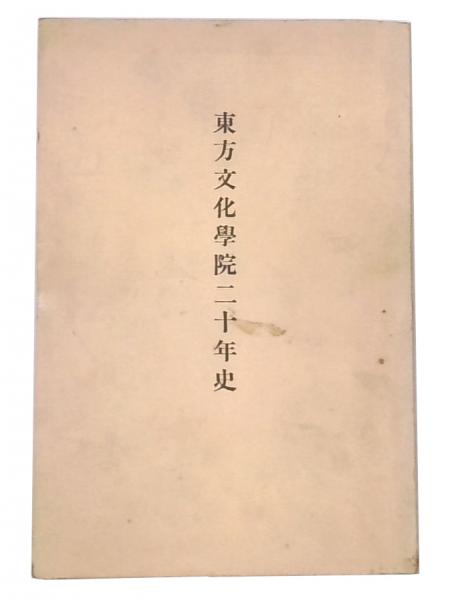 東方文化學院二十年史